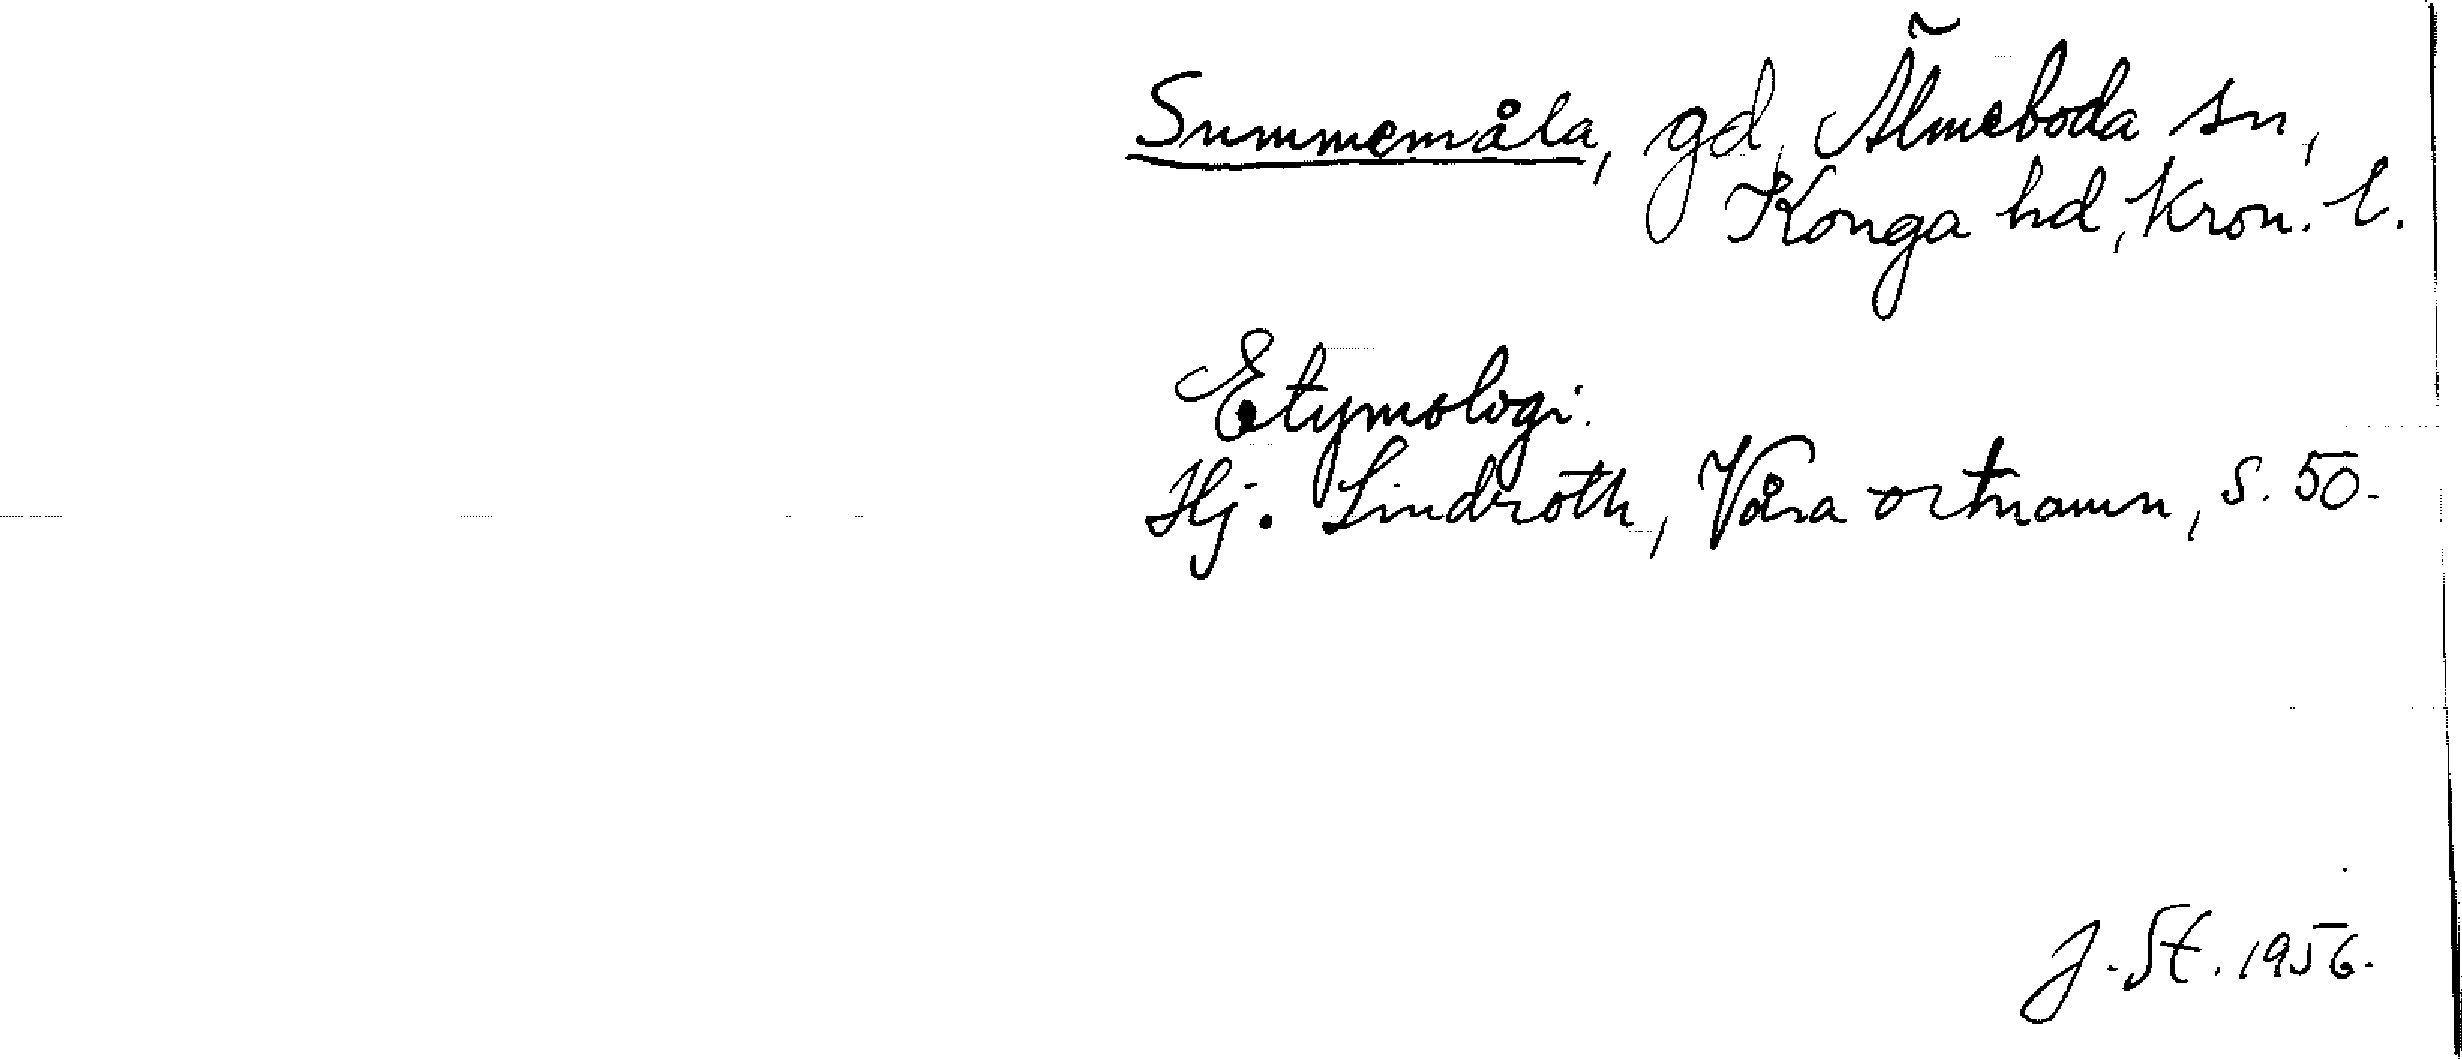 Summemåla, gd, Älmeboda sn,
Konga hd, Kron. l.
Etymologi.
Hj. Lindroth, Våra ortnamn, s. 50.
J. St. 1956.